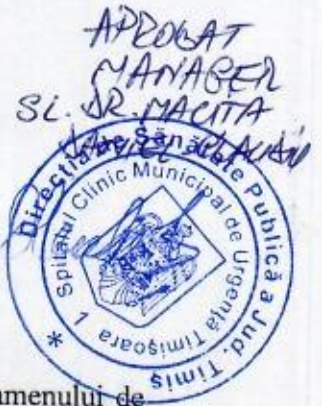 APROBAT
MANAGER
SL. DR. MACITA
Direcția de Sănătate Publică a Jud. Timiș
Spitalul Clinic Municipal de Urgență Timișoara
1
*
amenului de